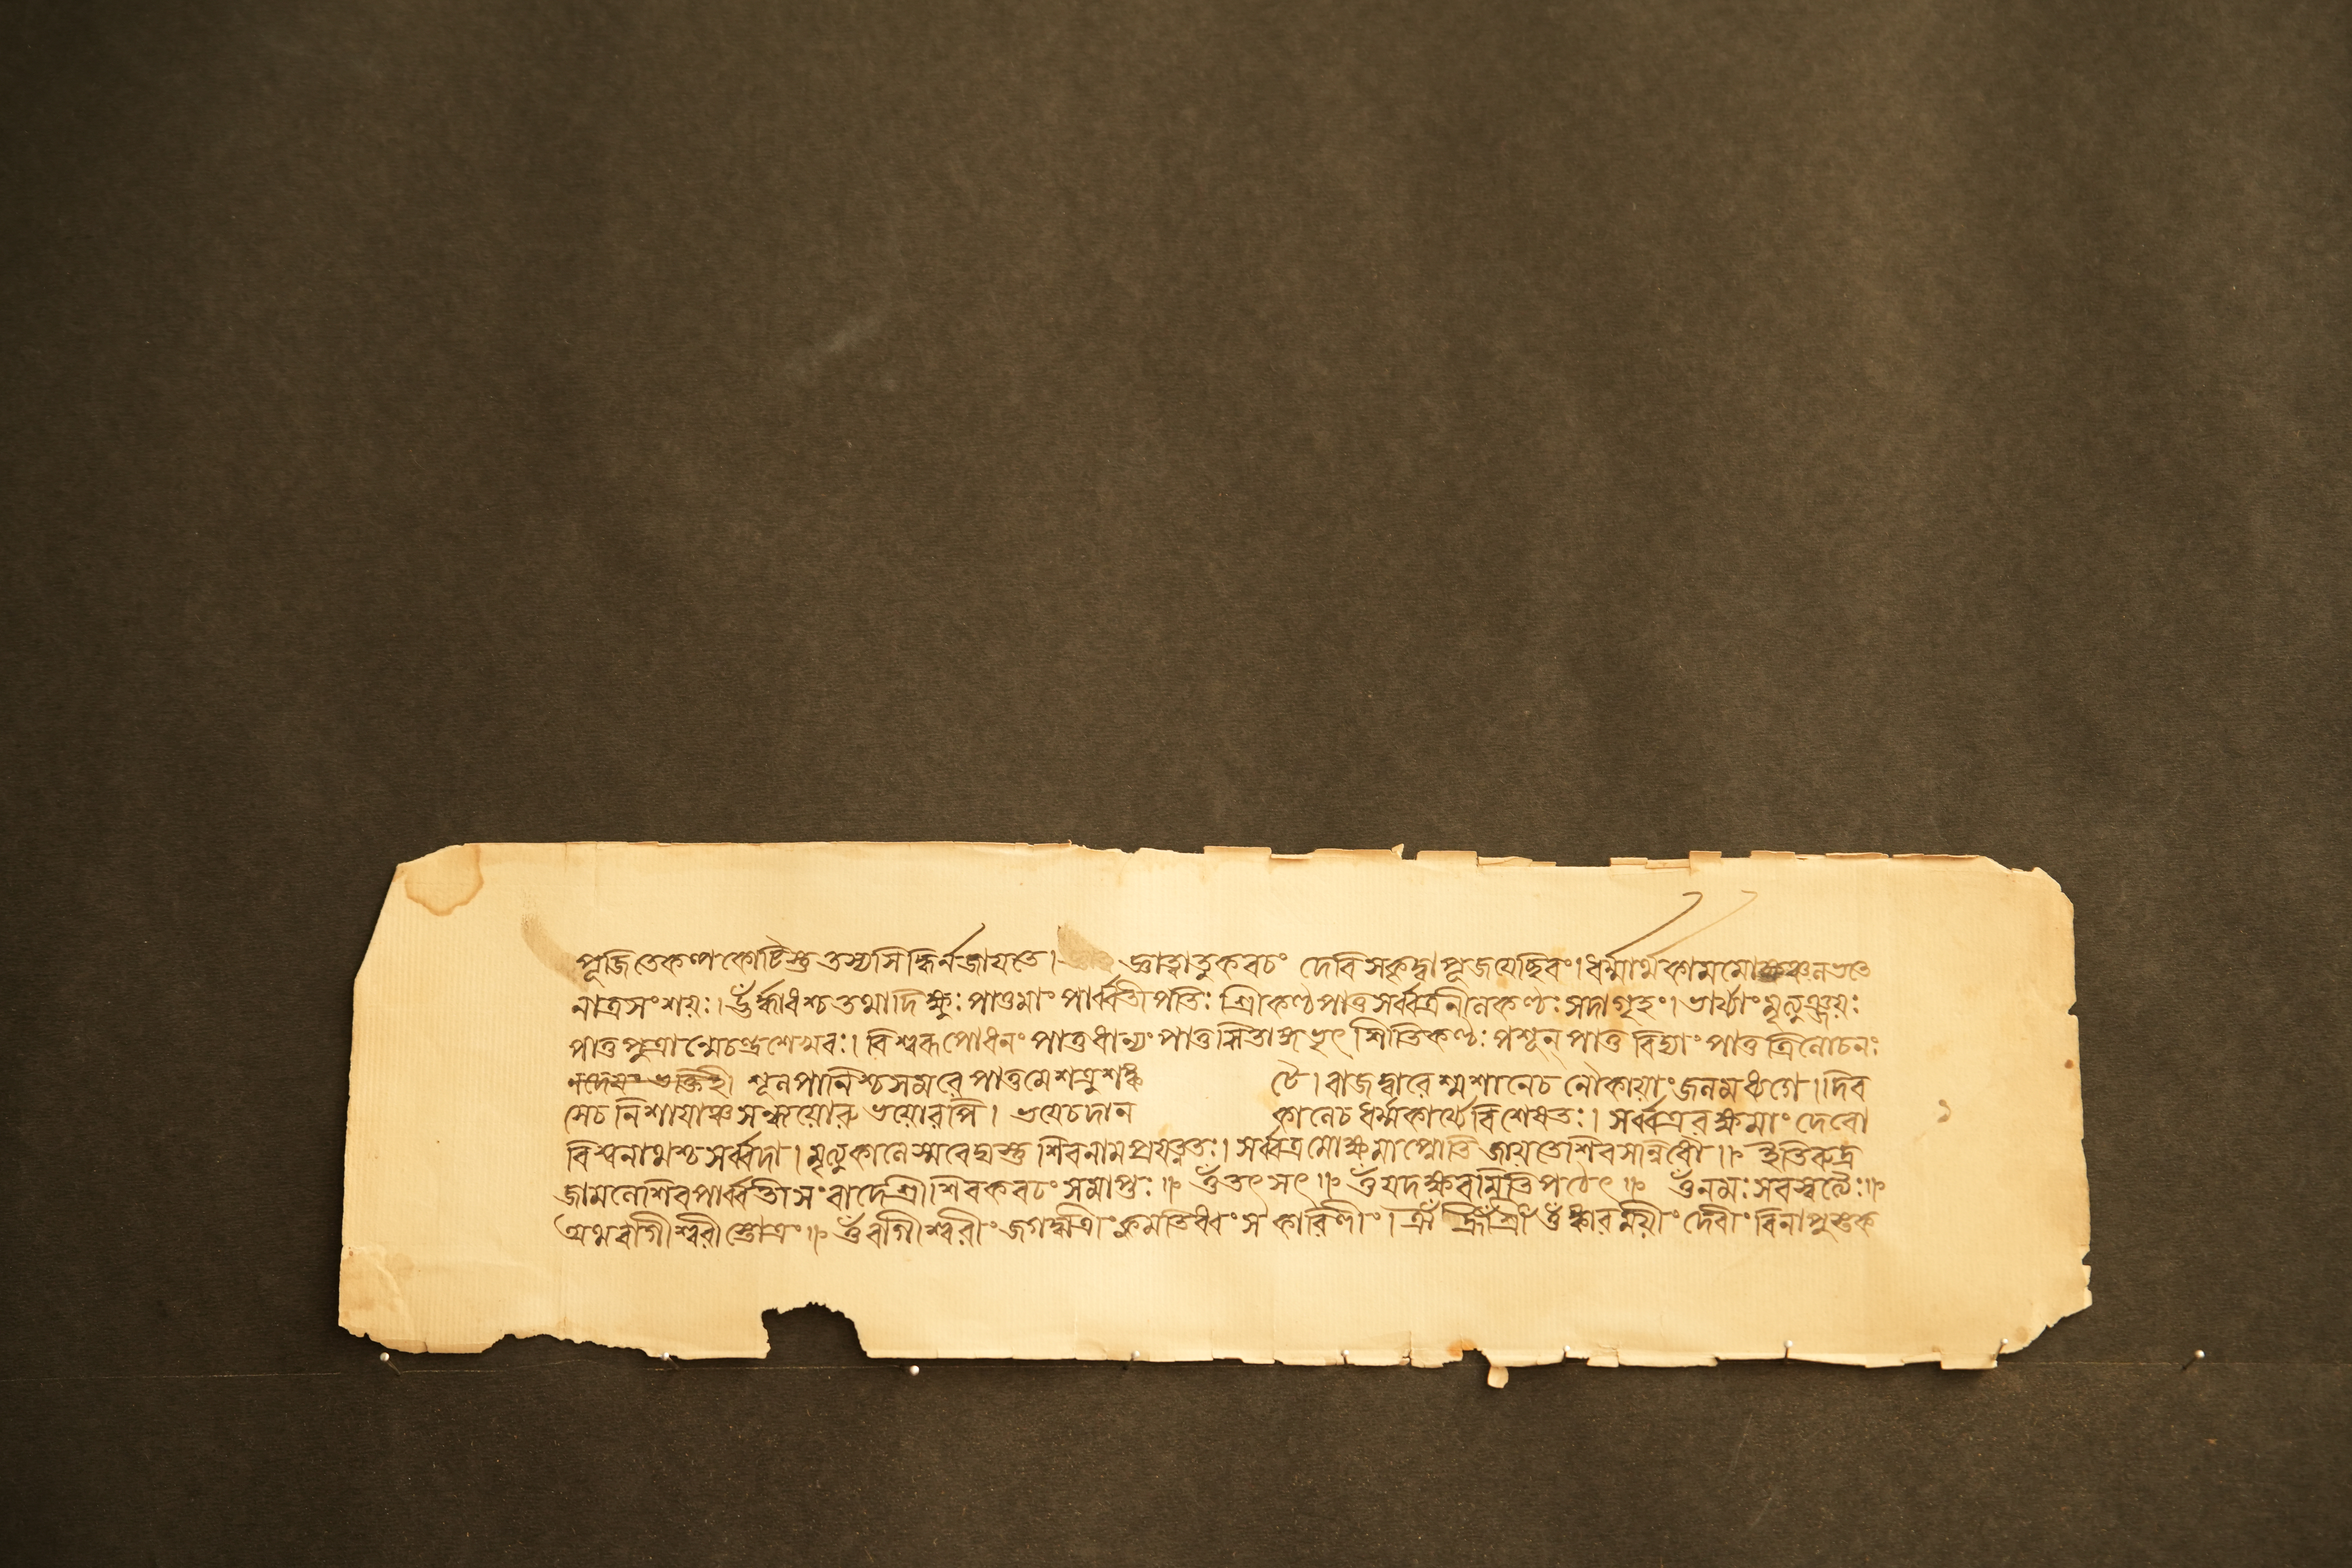 পূজিতেকল্পকোটিস্তু তস্যসিদ্ধির্নজায়তে। জ্ঞাত্বাতুকবচং দেবিসকৃদ্বাপূজয়েচ্ছিবং। ধর্ম্মার্থকামমো
নাত্রসংশয়ঃ। ঊর্দ্ধাধশ্চতথাদিক্ষুঃ পাতুমাং পার্ব্বতীপতিঃ শ্রীকণ্ঠপাতুসর্ব্বত্রনীলকণ্ঠঃ সদাগৃহং। ভার্য্যাং মৃত্যুঞ্জয়ঃ
পাতু পুত্রান্মেচন্দ্রশেখরঃ। বিশ্বরূপোধনং পাতুধান্যং পাতু শিতিকণ্ঠঃ পশূন্ পাতু বিদ্যাং পাতু ত্রিলোচনঃ
শূলপানিশ্চসমরে পাতুমেশত্রুশঙ্ক টে। রাজদ্বারেশ্মশানেচ নৌকায়াং জলমধ্যগে। দিব
সেচ নিশায়াঞ্চসন্ধ্যয়োরুভয়োরপি। ভয়েচদান কালেচ ধর্ম্মকার্য্যেবিশেষতঃ। সর্ব্বত্ররক্ষমাং দেবো
বিশ্বনাথশ্চসর্ব্বদা। মৃত্যুকালেস্মরেদ্যস্তু শিবনামপ্রযত্নতঃ। সর্ব্বত্রমোক্ষমাপ্নোতি জায়তেশিবসন্নিধৌ॥ ইতিরুদ্র
জামলেশিবপার্ব্বতীসংবাদেশ্রীশিবকবচং সমাপ্তঃ॥ ওঁতৎসৎ॥ ওঁযদক্ষরমিতিপঠেৎ॥ ওঁনমঃ সরস্বত্যৈঃ॥
অথবাগীশ্বরীস্তোত্রং॥ ওঁবাগীশ্বরীং জগদ্ধাত্রীং কুমতিধ্বংসকারিণীং। ঐঁ হ্রীঁ শ্রীঁ ওঁঙ্কারময়ীং দেবীং বিনাপুস্তক